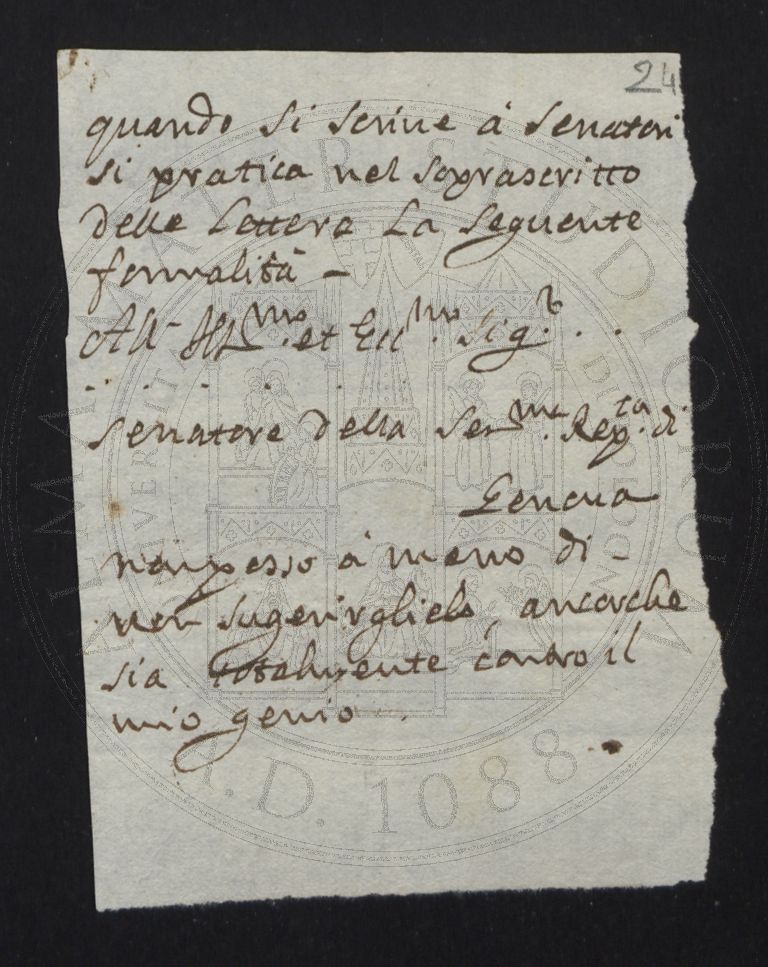 24
quando si scrive à senatori
si pratica nel soprascritto
delle lettere la seguente
formalità –
All' Ill.mo et Ecc.mo Sig.r . .
. . . . . . . .
senatore della Ser.ma Rep.ca di
Genova
non posso à meno di –
non sugerirglielo, ancorche
sia totalmente contro il
mio genio .
ALMA MATER STUDIORUM
UNIVERSITÀ DI BOLOGNA
A.D. 1088